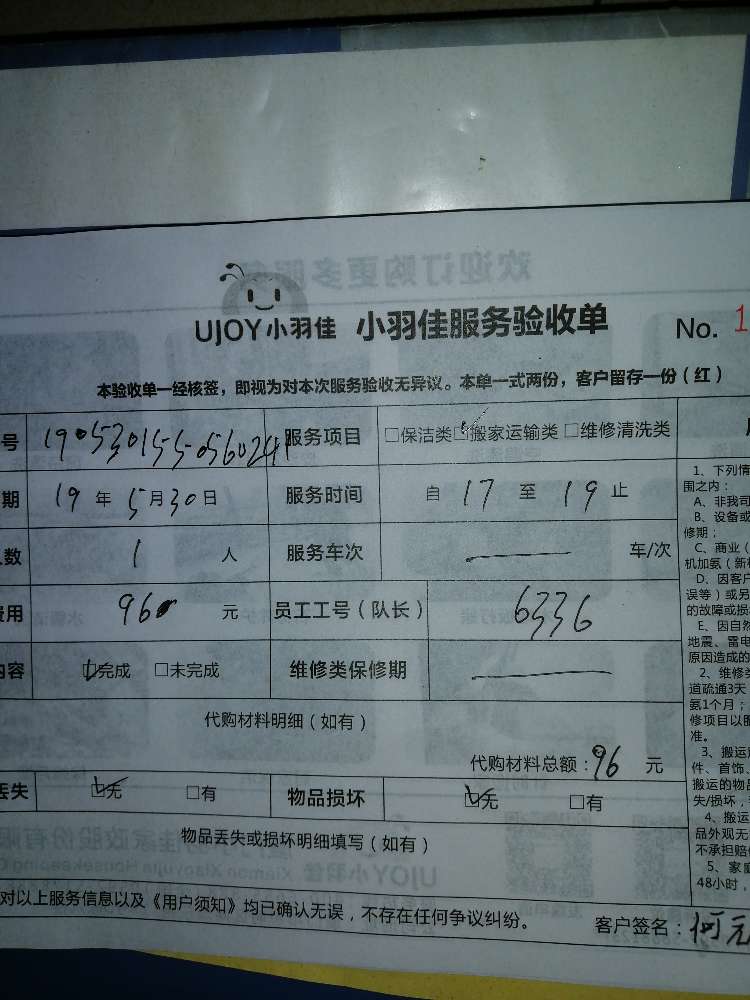 UJOY小羽佳 小羽佳服务验收单 No. 1
本验收单一经核签，即视为对本次服务验收无异议。本单一式两份，客户留存一份（红）
号 服务项目 □保洁类 ☑搬家运输类 □维修清洗类
期 19 年 5 月 30 日 服务时间 自 17 至 19 止
人数 1 人 服务车次 — 车/次
费用 96 元 员工工号（队长） 6336
内容 ☑完成 □未完成 维修类保修期 —
代购材料明细（如有）
代购材料总额：96 元
丢失 ☑无 □有 物品损坏 ☑无 □有
物品丢失或损坏明细填写（如有）
对以上服务信息以及《用户须知》均已确认无误，不存在任何争议纠纷。 客户签名：何元
1、下列情
围之内：
A、非我司
B、设备或
修期；
C、商业（
机加氨（新
D、因客户
误等）或另
的故障或损
E、因自然
地震、雷电
原因造成的
2、维修类
道疏通3天
氨1个月；
修项目以服
准。
3、搬运
件、首饰、
搬运的物品
失/损坏，
4、搬运
品外观无
不承担赔
5、家庭
48小时，